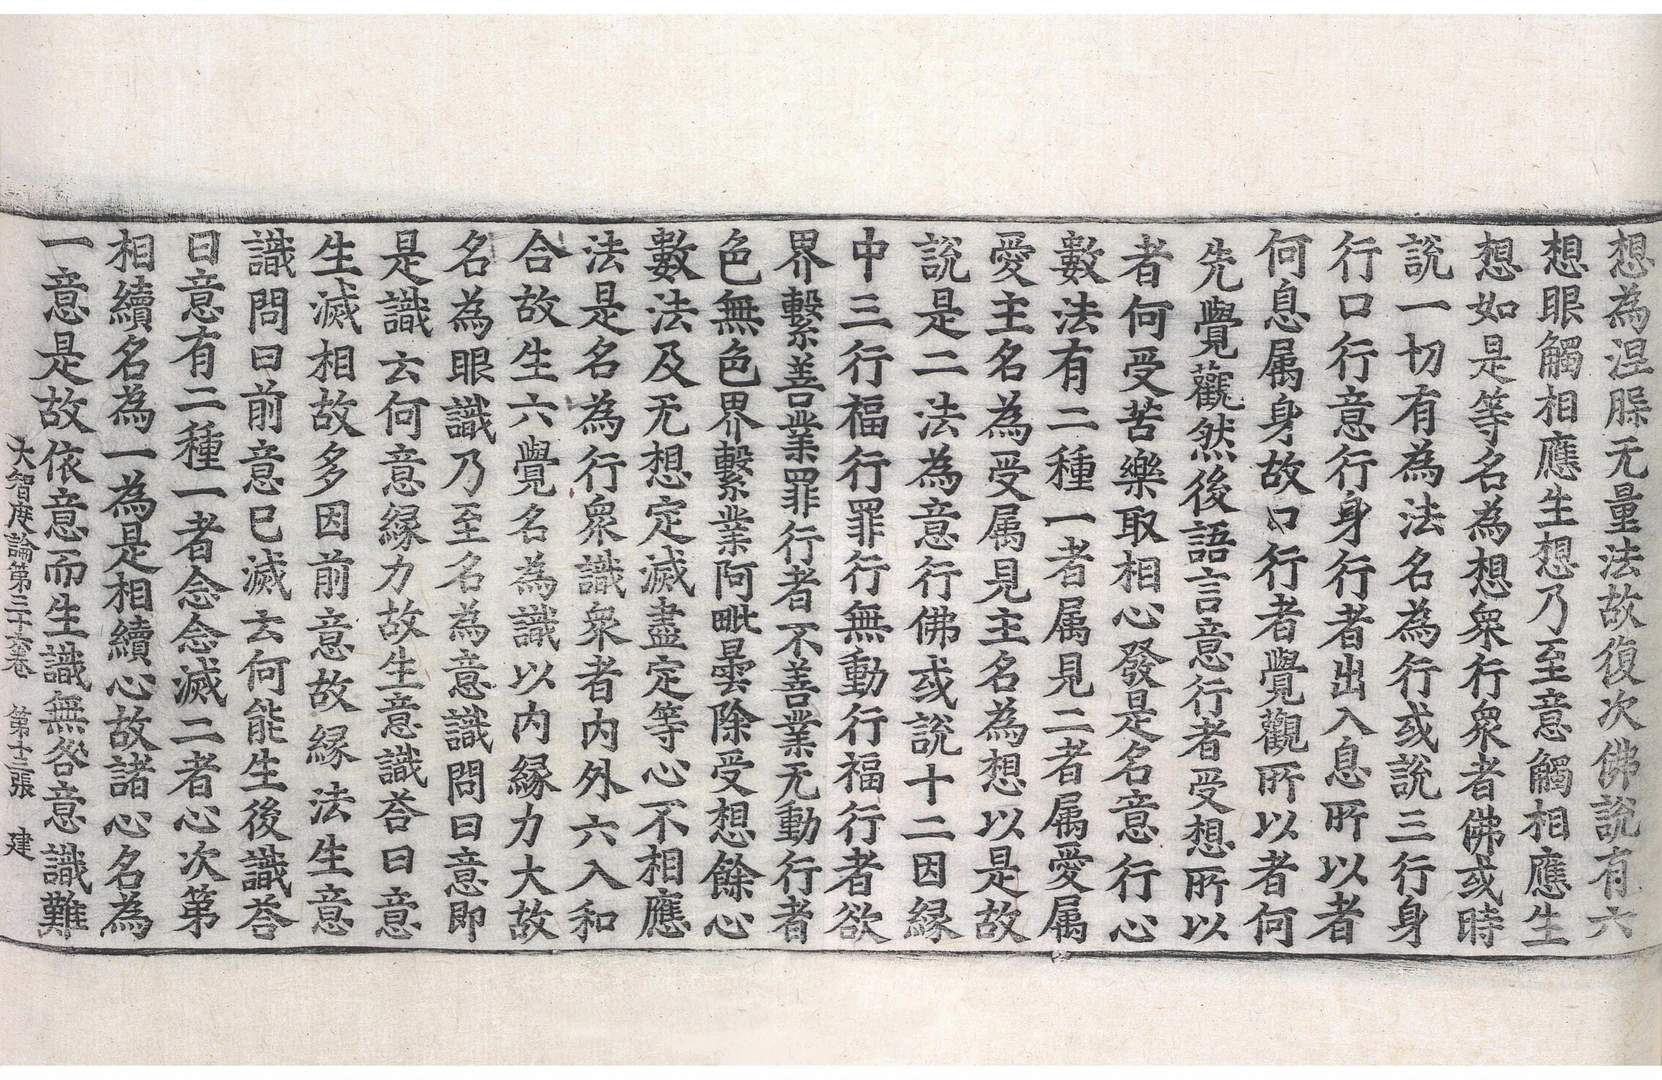 想為涅槃无量法故復次佛說有六
想眼觸相應生想乃至意觸相應生
想如是等名為想衆行衆者佛或時
說一切有為法名為行或說三行身
行口行意行身行者出入息所以者
何息属身故口行者覺觀所以者何
先覺觀然後語言意行者受想所以
者何受苦樂取相心發是名意行心
數法有二種一者属見二者属愛属
愛主名為受属見主名為想以是故
說是二法為意行佛或說十二因縁
中三行福行罪行無動行福行者欲
界繫善業罪行者不善業无動行者
色無色界繫業阿毗曇除受想餘心
數法及无想定滅盡定等心不相應
法是名為行衆識衆者内外六入和
合故生六覺名為識以内縁力大故
名為眼識乃至名為意識問曰意即
是識云何意縁力故生意識荅曰意
生滅相故多因前意故縁法生意
識問曰前意已滅云何能生後識荅
曰意有二種一者念念滅二者心次第
相續名為一為是相續心故諸心名為
一意是故依意而生識無咎意識難
大智度論第三十六卷 第十三張 建